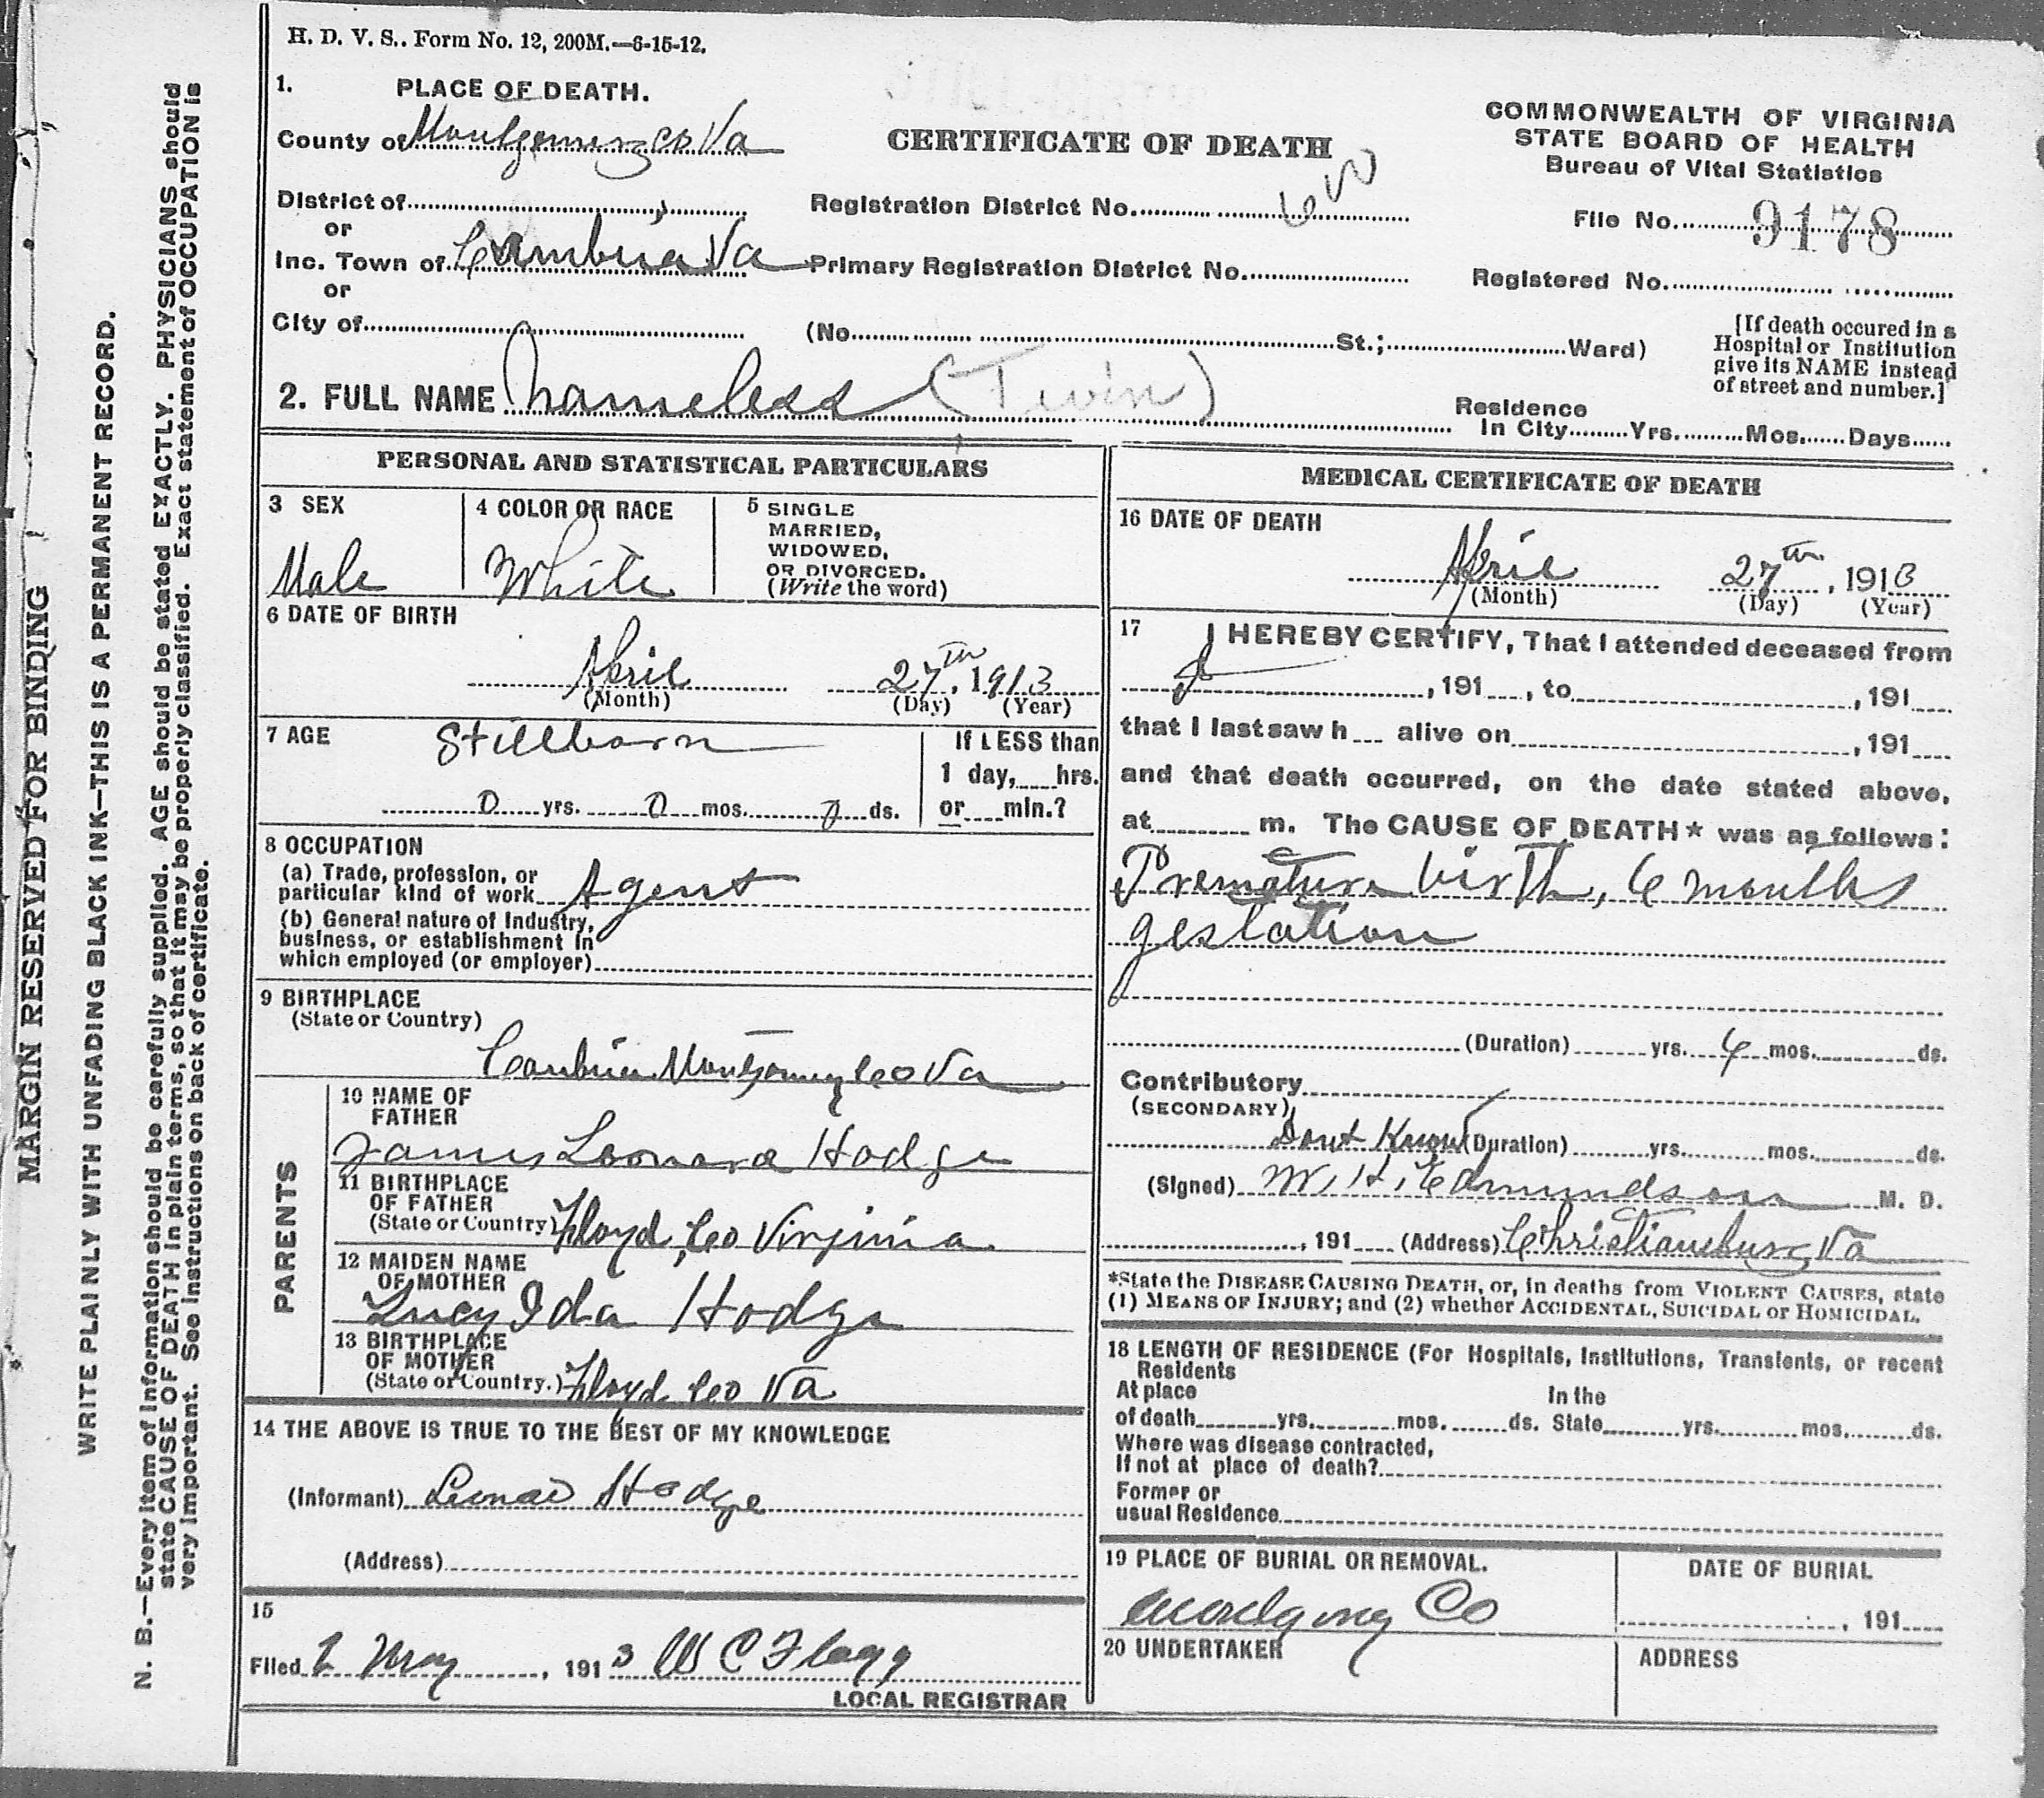 H. D. V. S.. Form No. 12, 200M.—6-15-12.
1. PLACE OF DEATH.
County of Montgomery Co Va
District of
or
Inc. Town of Cambria Va
or
City of
CERTIFICATE OF DEATH
Registration District No. 600
Primary Registration District No.
(No. St.; Ward)
COMMONWEALTH OF VIRGINIA
STATE BOARD OF HEALTH
Bureau of Vital Statistics
File No. 9178
Registered No.
[If death occured in a
Hospital or Institution
give its NAME instead
of street and number.]
2. FULL NAME Nameless (Twin)
Residence
In City Yrs. Mos. Days
PERSONAL AND STATISTICAL PARTICULARS
3 SEX
Male
4 COLOR OR RACE
White
5 SINGLE
MARRIED,
WIDOWED,
OR DIVORCED.
(Write the word)
6 DATE OF BIRTH
April 27th, 1913
(Month) (Day) (Year)
7 AGE Stillborn
0 yrs. 0 mos. 0 ds.
If LESS than
1 day, hrs.
or min.?
8 OCCUPATION
(a) Trade, profession, or
particular kind of work Agent
(b) General nature of Industry,
business, or establishment in
which employed (or employer)
9 BIRTHPLACE
(State or Country)
Cambria Montgomery Co Va
PARENTS
10 NAME OF
FATHER
James Leonard Hodge
11 BIRTHPLACE
OF FATHER
(State or Country) Floyd, Co Virginia
12 MAIDEN NAME
OF MOTHER
Lucy Ida Hodge
13 BIRTHPLACE
OF MOTHER
(State or Country.) Floyd Co Va
14 THE ABOVE IS TRUE TO THE BEST OF MY KNOWLEDGE
(Informant) Hodge
(Address)
15
Filed 2 May, 1913 W C Flagg
LOCAL REGISTRAR
MEDICAL CERTIFICATE OF DEATH
16 DATE OF DEATH
April 27th, 1913
(Month) (Day) (Year)
17 I HEREBY CERTIFY, That I attended deceased from
, 191 , to , 191
that I last saw h alive on , 191
and that death occurred, on the date stated above,
at m. The CAUSE OF DEATH* was as follows:
Premature birth, 6 months
gestation
(Duration) yrs. 6 mos. ds.
Contributory
(SECONDARY)
Dont Know (Duration) yrs. mos. ds.
(Signed) W. H. Edmundson M. D.
, 191 (Address) Christiansburg Va
*State the DISEASE CAUSING DEATH, or, in deaths from VIOLENT CAUSES, state
(1) MEANS OF INJURY; and (2) whether ACCIDENTAL, SUICIDAL or HOMICIDAL.
18 LENGTH OF RESIDENCE (For Hospitals, Institutions, Transients, or recent
Residents
At place In the
of death yrs. mos. ds. State yrs. mos. ds.
Where was disease contracted,
If not at place of death?
Former or
usual Residence
19 PLACE OF BURIAL OR REMOVAL.
Co
DATE OF BURIAL
, 191
20 UNDERTAKER
ADDRESS
MARGIN RESERVED FOR BINDING
WRITE PLAINLY WITH UNFADING BLACK INK—THIS IS A PERMANENT RECORD.
N. B.—Every item of information should be carefully supplied. AGE should be stated EXACTLY. PHYSICIANS should
state CAUSE OF DEATH in plain terms, so that it may be properly classified. Exact statement of OCCUPATION is
very important. See instructions on back of certificate.